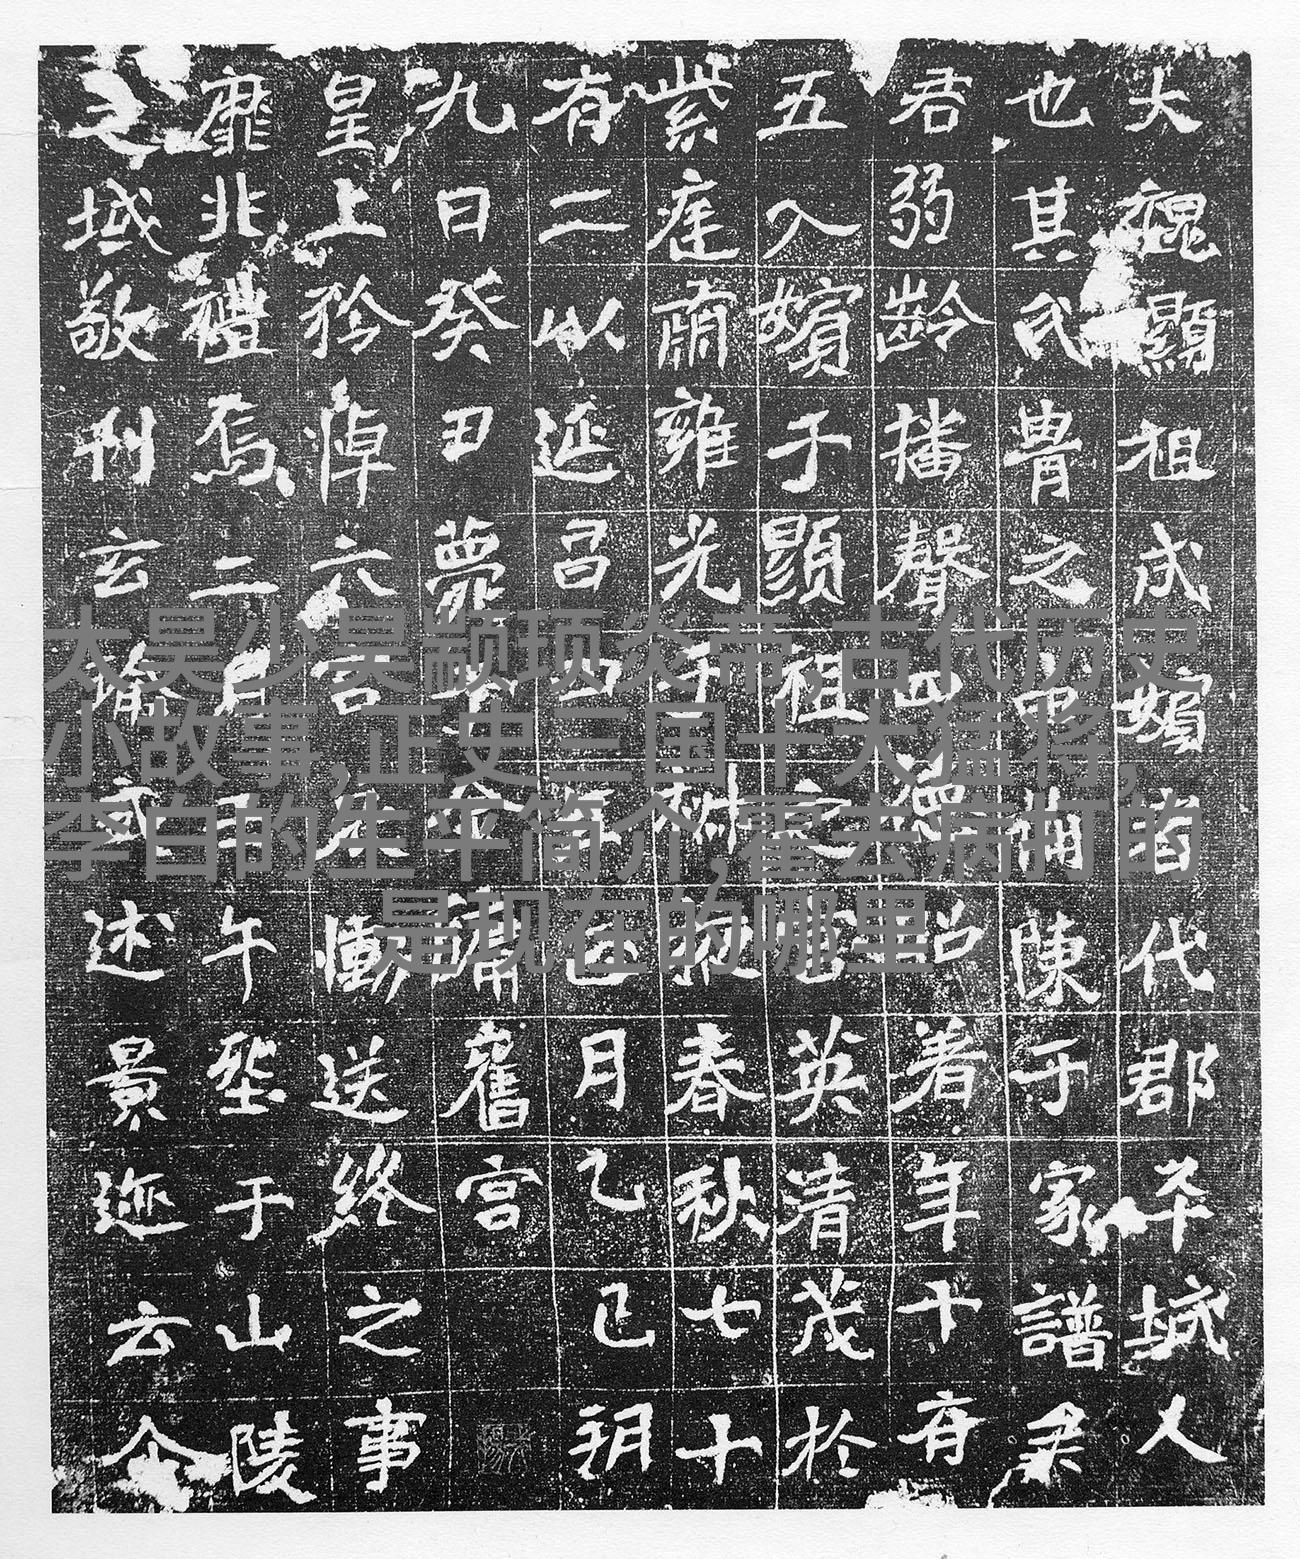 大魏顯祖成嬪者代郡平城人
也其氏胄之由備陳于家譜矣
君弱齡播聲四德昭著年十有
五入嬪于顯祖之宮英清茂於
紫庭肅雍光于椒掖春秋七十
有二以延昌四年月乙巳朔
九日癸丑薨於金墉舊宮
皇上矜悼六宮哀慟送終之事
靡非禮焉二月壬午堲于山陵
之域敬刊玄瑜式述景迹云尒
太昊少昊颛顼炎帝,古代历史
小故事,正史三国十大猛将,
李白的生平简介,霍去病打的
是现在的哪里